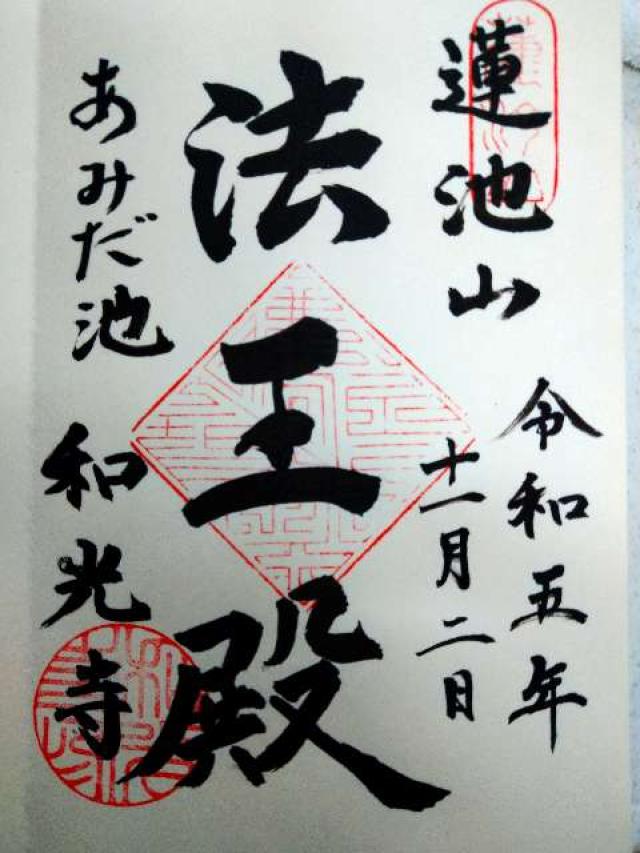 蓮池山
令和五年
十一月二日
法王殿
あみだ池
和光寺